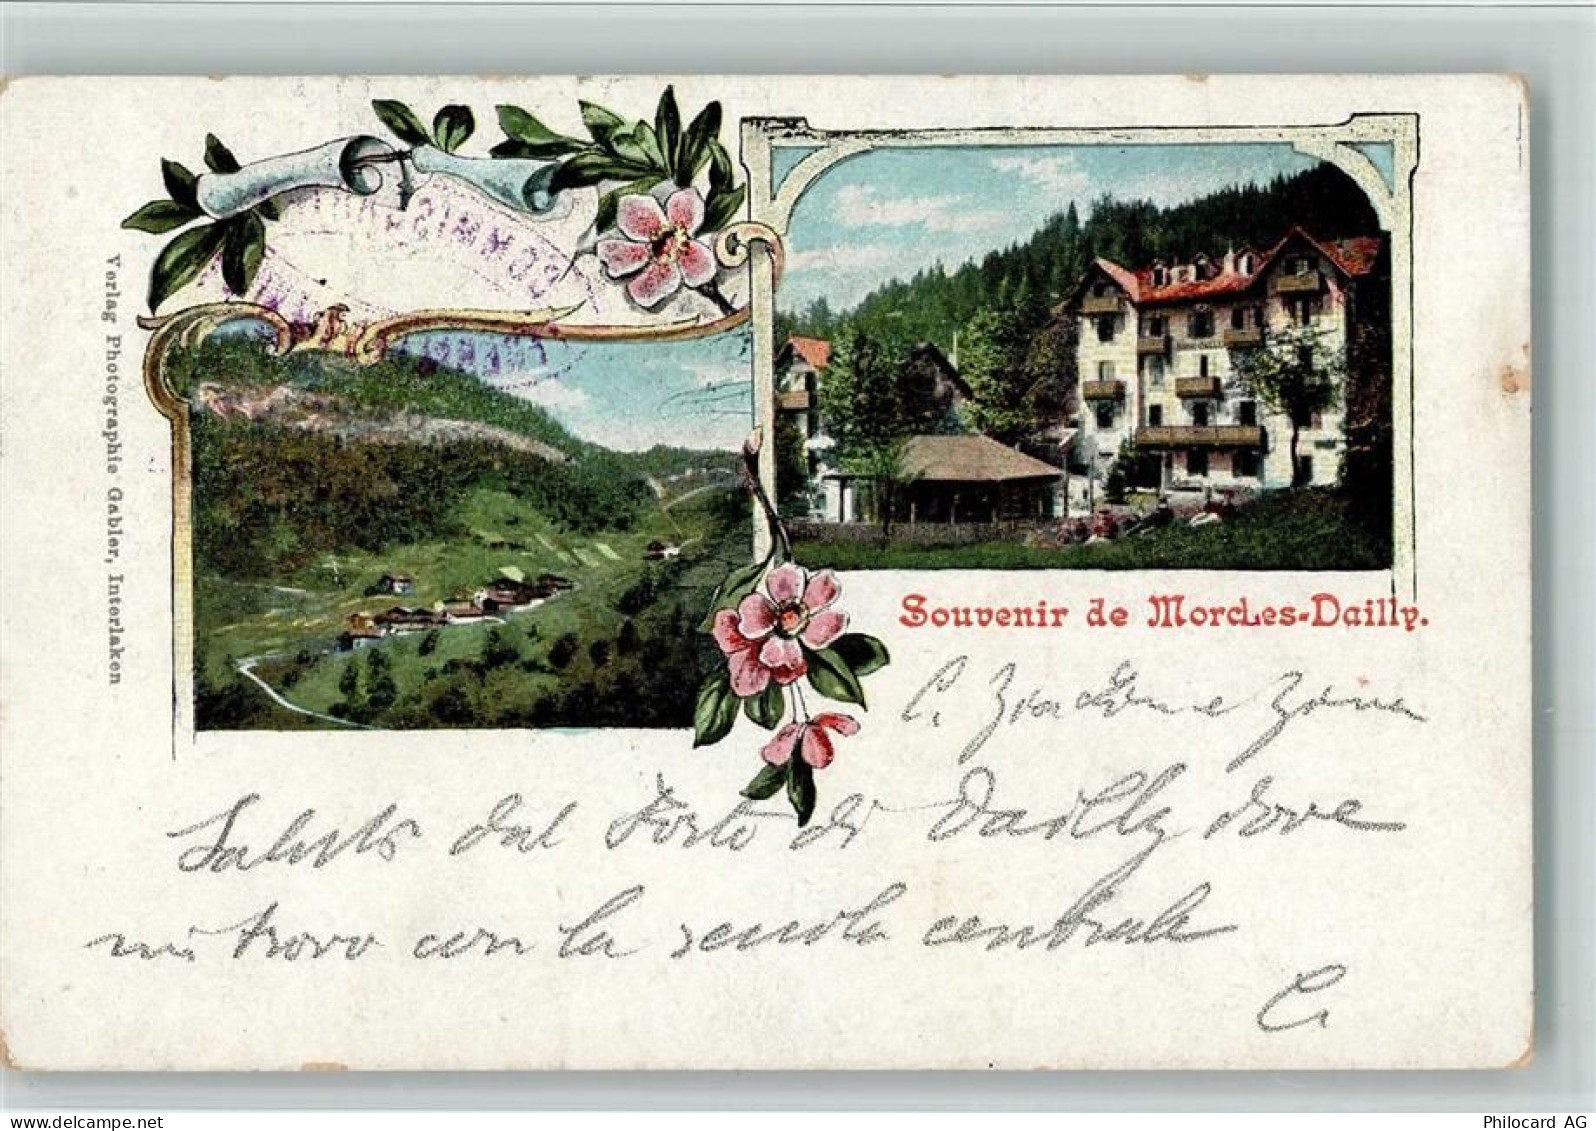 COMMISSARI
Verlag Photographie Gabler, Interlaken
Souvenir de Morcles-Dailly.
C.
Saluto dal Forte di Dailly dove
mi trovo con la scuola centrale
C.
Philocard AG